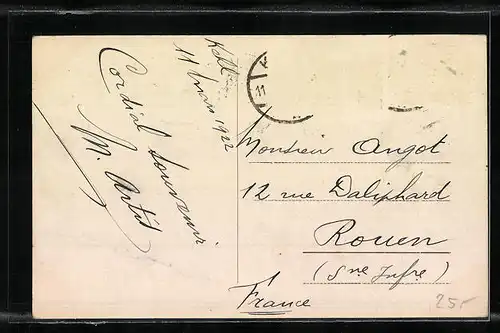 11 mars 1922
Cordial souvenir
Monsieur Angot
12 rue Daliphard
Rouen
(Sne Infre)
France
11
25.-